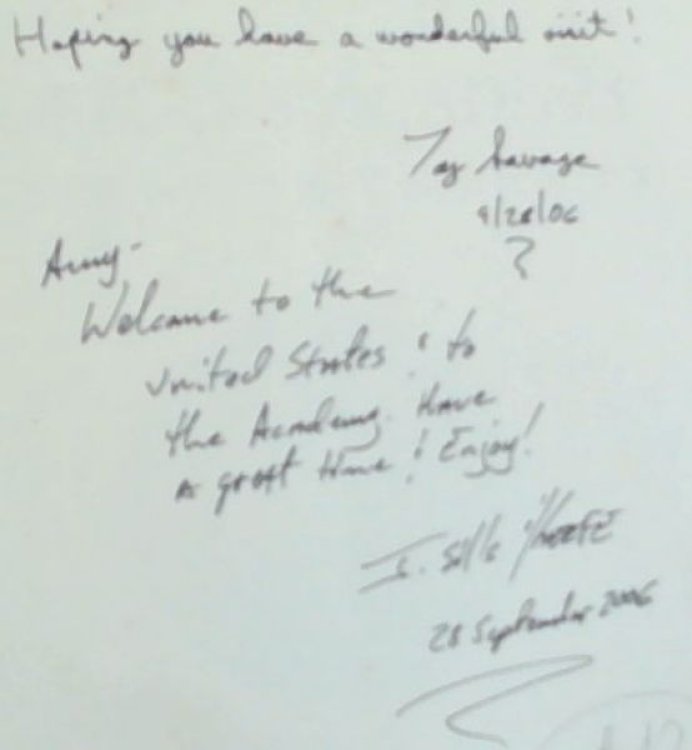 Hoping you have a wonderful visit!
Savage
9/28/06
?
Amy-
Welcome to the
United States & to
the Academy. Have
a great time & Enjoy!
28 September 2006